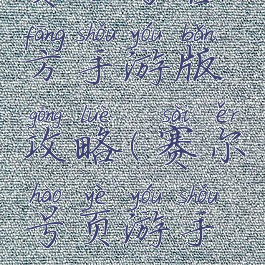 fāng shǒu yóu bǎn
方手游版
gōng lüè sài ěr
攻略(赛尔
hào yè yóu shǒu
号页游手